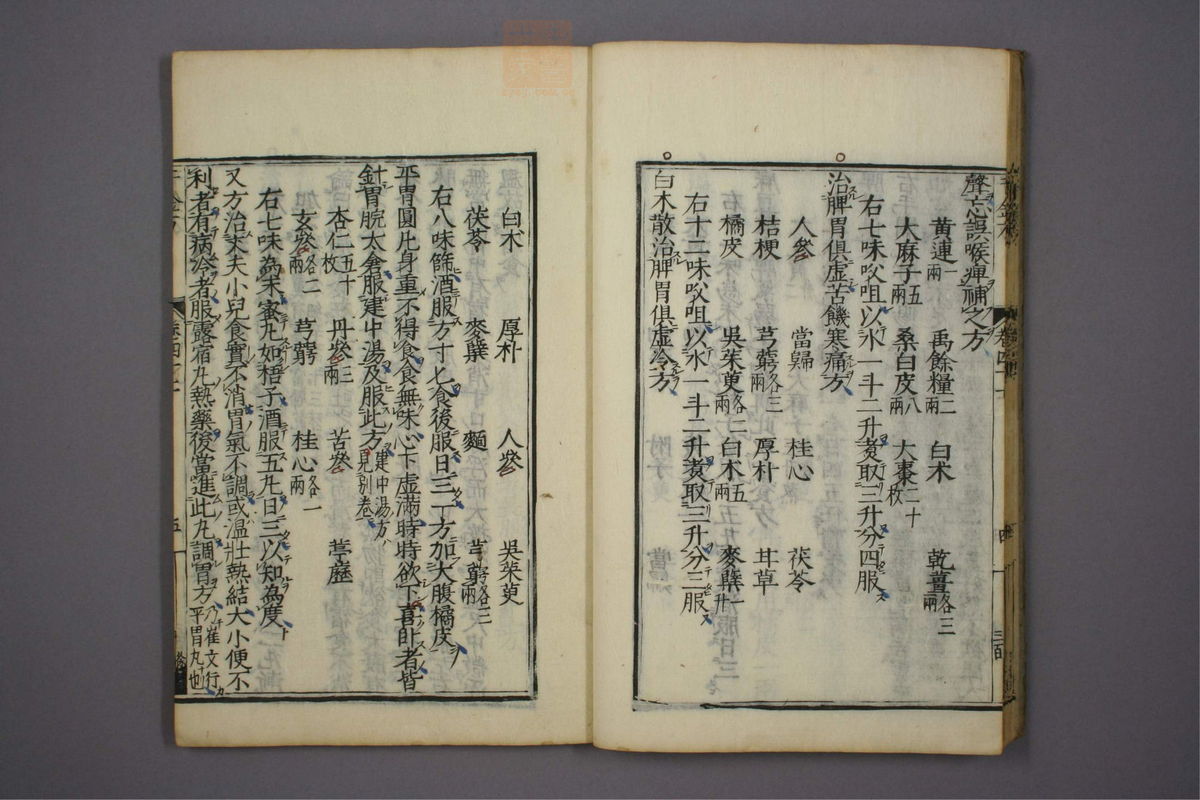 聲忘誤喉痺補之方
黃連一兩 禹餘糧二兩 白朮 乾薑各三兩
大麻子五兩 桑白皮八兩 大棗二十枚
右七味㕮咀以水一斗二升煮取三升分四服
治脾胃俱虛苦饑寒痛方
人參 當歸 桂心 茯苓
桔梗 芎藭各三兩 厚朴 甘草
橘皮 吳茱萸各二兩 白朮五兩 麥蘗一升
右十二味㕮咀以水一斗二升煮取三升分三服
白朮散治脾胃俱虛冷方
白朮 厚朴 人參 吳茱萸
茯苓 麥蘗 麴 芎藭各三兩
右八味篩酒服方寸匕食後服日三一方加大腹橘皮
平胃圓凡身重不得食食無味心下虛滿時時欲下喜卧者皆
針胃脘太倉服建中湯及服此方建中湯方見別卷
杏仁五十枚 丹參三兩 苦參 葶藶
玄參各二兩 芎藭 桂心各一兩
右七味為末蜜丸如梧子酒服五丸日三以知為度
又方治丈夫小兒食實不消胃氣不調或溫壯熱結大小便不
利者有病冷者服露宿丸熱藥後當進此丸調胃方乃崔文行平胃丸也